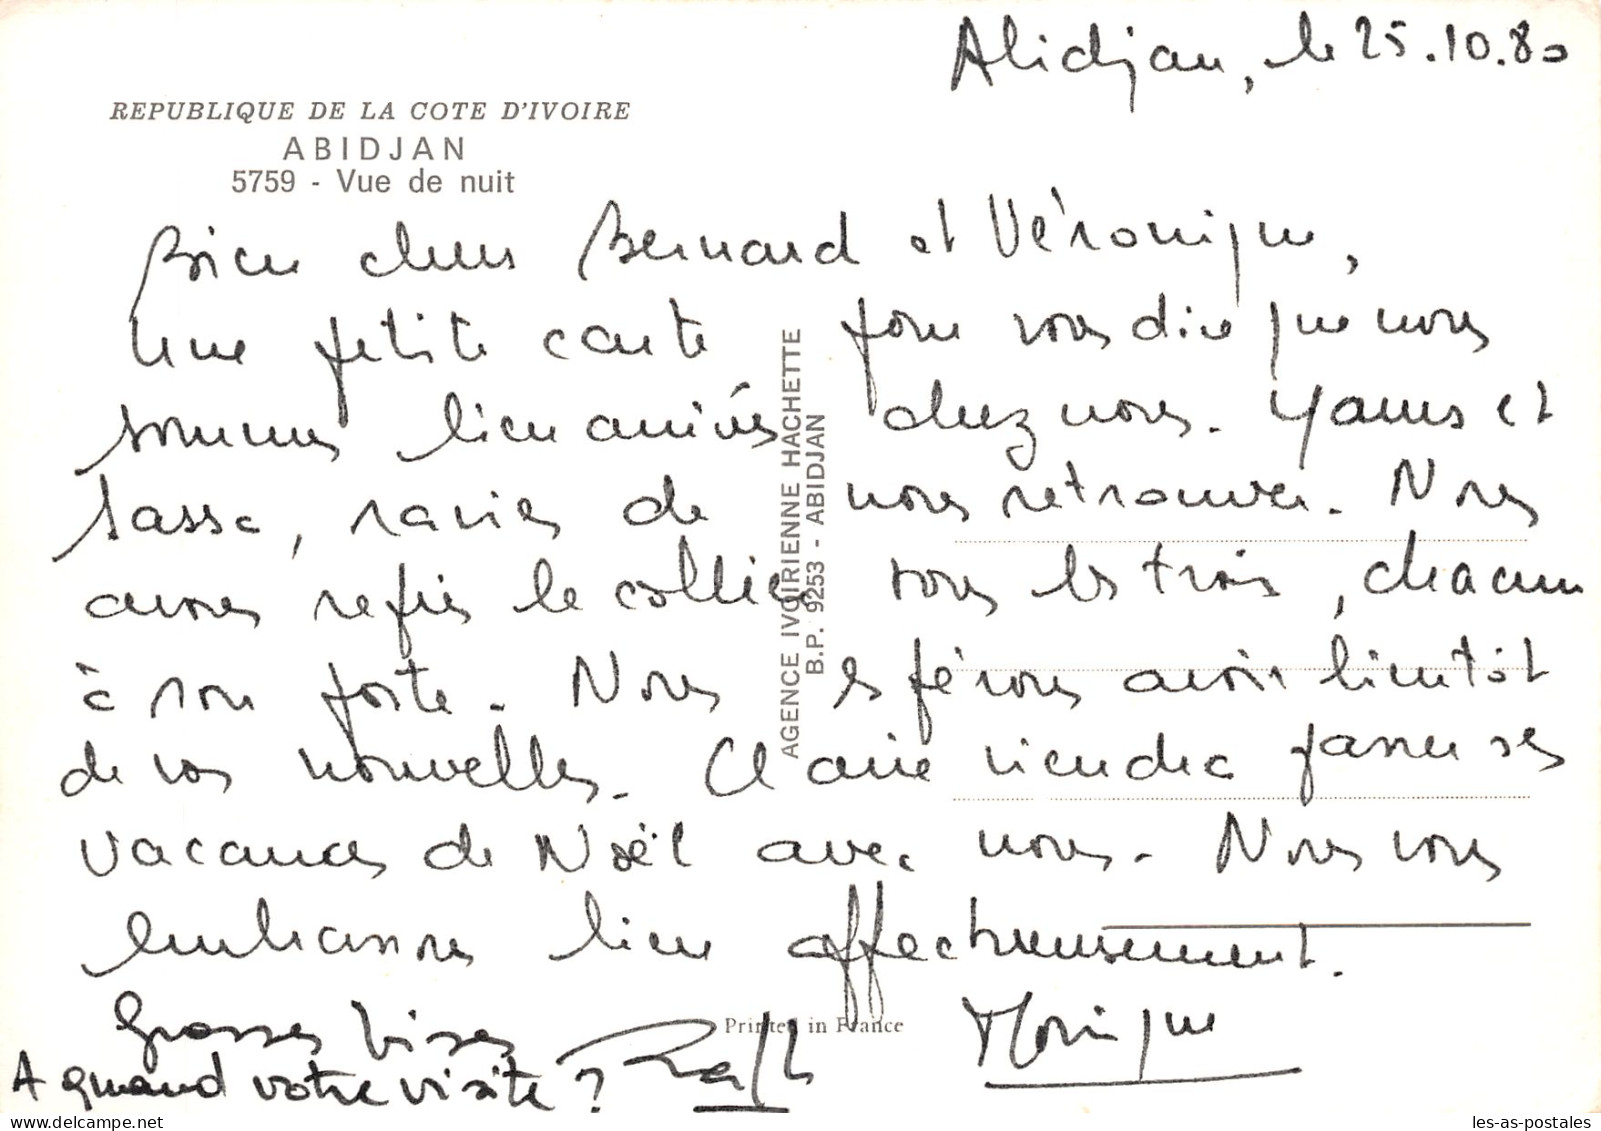 Abidjan, le 25.10.80
REPUBLIQUE DE LA COTE D'IVOIRE
ABIDJAN
5759 - Vue de nuit
Bien chers Bernard et Véronique,
Une petite carte pour vous dire que nous
sommes bien arrivés chez nous. Yanis et
Sassa, ravies de nous retrouver. Nous
avons repris le collier tous les trois, chacun
à son poste. Nous espérons avoir bientôt
de vos nouvelles. Claire viendra passer ses
vacances de Noël avec nous. Nous vous
embrassons bien affectueusement.
Grosses bises Monique
A quand votre visite ? Ralph
AGENCE IVOIRIENNE HACHETTE
B.P. 9253 - ABIDJAN
Printed in France
les-as-postales